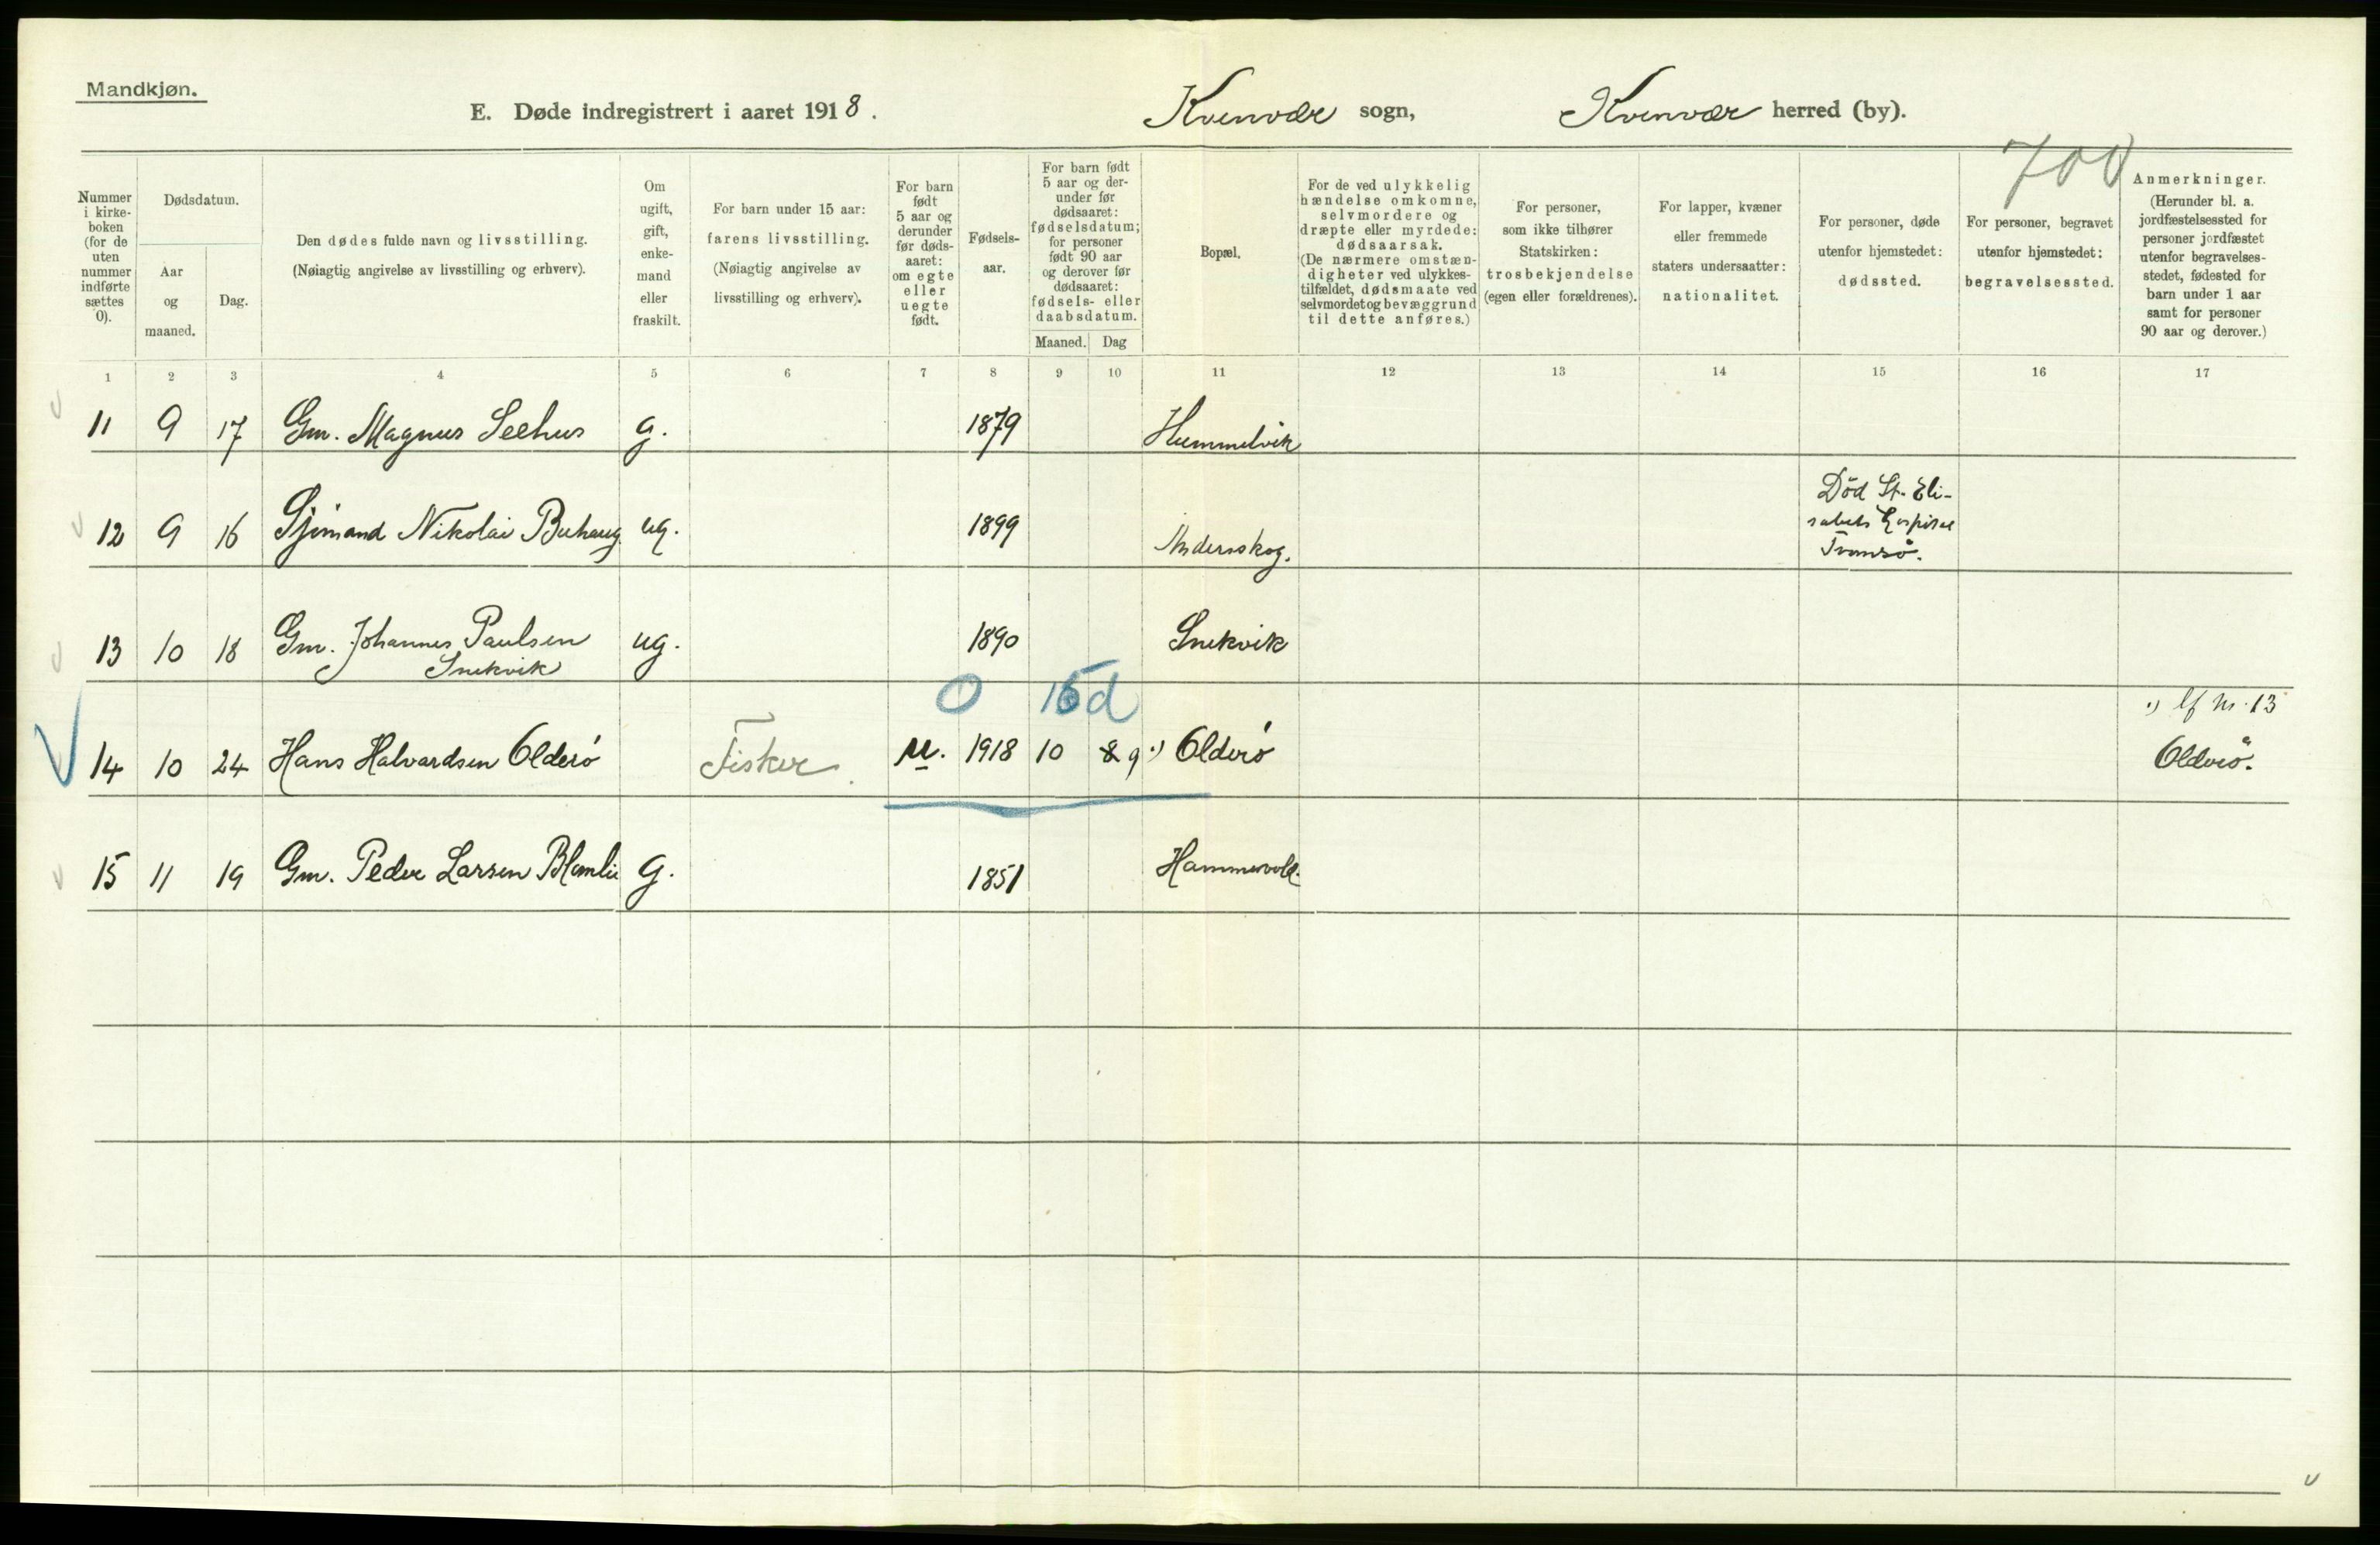 Mandkjøn.
E. Døde indregistrert i aaret 1918.
Kvenvær sogn,
Kvenvær herred (by).
700
Nummer i kirkeboken (for de uten nummer indførte sættes 0).
Dødsdatum.
Aar og maaned.
Dag.
Den dødes fulde navn og livsstilling.
(Nøiagtig angivelse av livsstilling og erhverv).
Om ugift, gift, enkemand eller fraskilt.
For barn under 15 aar:
farens livsstilling.
(Nøiagtig angivelse av livsstilling og erhverv).
For barn født 5 aar og derunder før dødsaaret: om egte eller uegte født.
Fødselsaar.
For barn født 5 aar og derunder før dødsaaret: fødselsdatum; for personer født 90 aar og derover før dødsaaret: fødsels- eller daabsdatum.
Maaned. Dag
Bopæl.
For de ved ulykkelig hændelse omkomne, selvmordere og dræpte eller myrdede: dødsaarsak.
(De nærmere omstændigheter ved ulykkestilfældet, dødsmaate ved selvmordet og bevæggrund til dette anføres.)
For personer, som ikke tilhører Statskirken: trosbekjendelse (egen eller forældrenes).
For lapper, kvæner eller fremmede staters undersaatter: nationalitet.
For personer, døde utenfor hjemstedet: dødssted.
For personer, begravet utenfor hjemstedet: begravelsessted.
Anmerkninger.
(Herunder bl. a. jordfæstelsessted for personer jordfæstet utenfor begravelsesstedet, fødested for barn under 1 aar samt for personer 90 aar og derover.)
1 2 3 4 5 6 7 8 9 10 11 12 13 14 15 16 17
11 9 17 Gm. Magnus Seehus g. 1879 Hummelvik
12 9 16 Sjömand Nikolai Buhaug ug. 1899 Anderskog. Död St. Eli-
sabets Hospital
Tromsö.
13 10 18 Gm. Johannes Paulsen ug. 1890 Snekvik
Snekvik
0 15 d
14 10 24 Hans Halvardsen Olderö Fisker u. 1918 10 9 Olderö
·) cf nr. 13
Olderö.
15 11 19 Gm. Peder Larsen Blomli g. 1851 Hammervold.